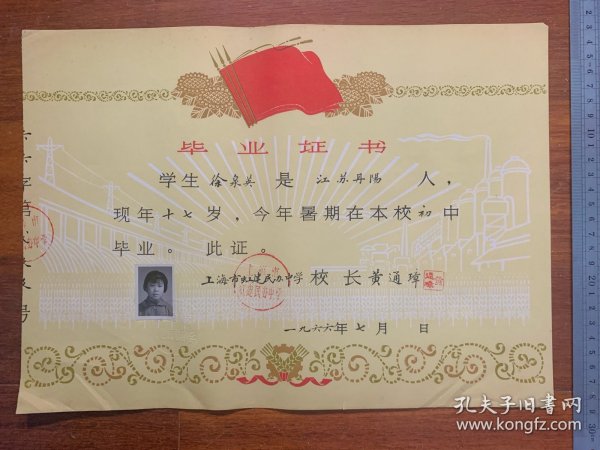 毕业证书
学生徐泉英是江苏丹陽人，
现年十七岁，今年暑期在本校初中
毕业。此证。
上海市虹建民办中学校长黄通璋
一九六六年七月 日
孔夫子旧书网
www.kongfz.com